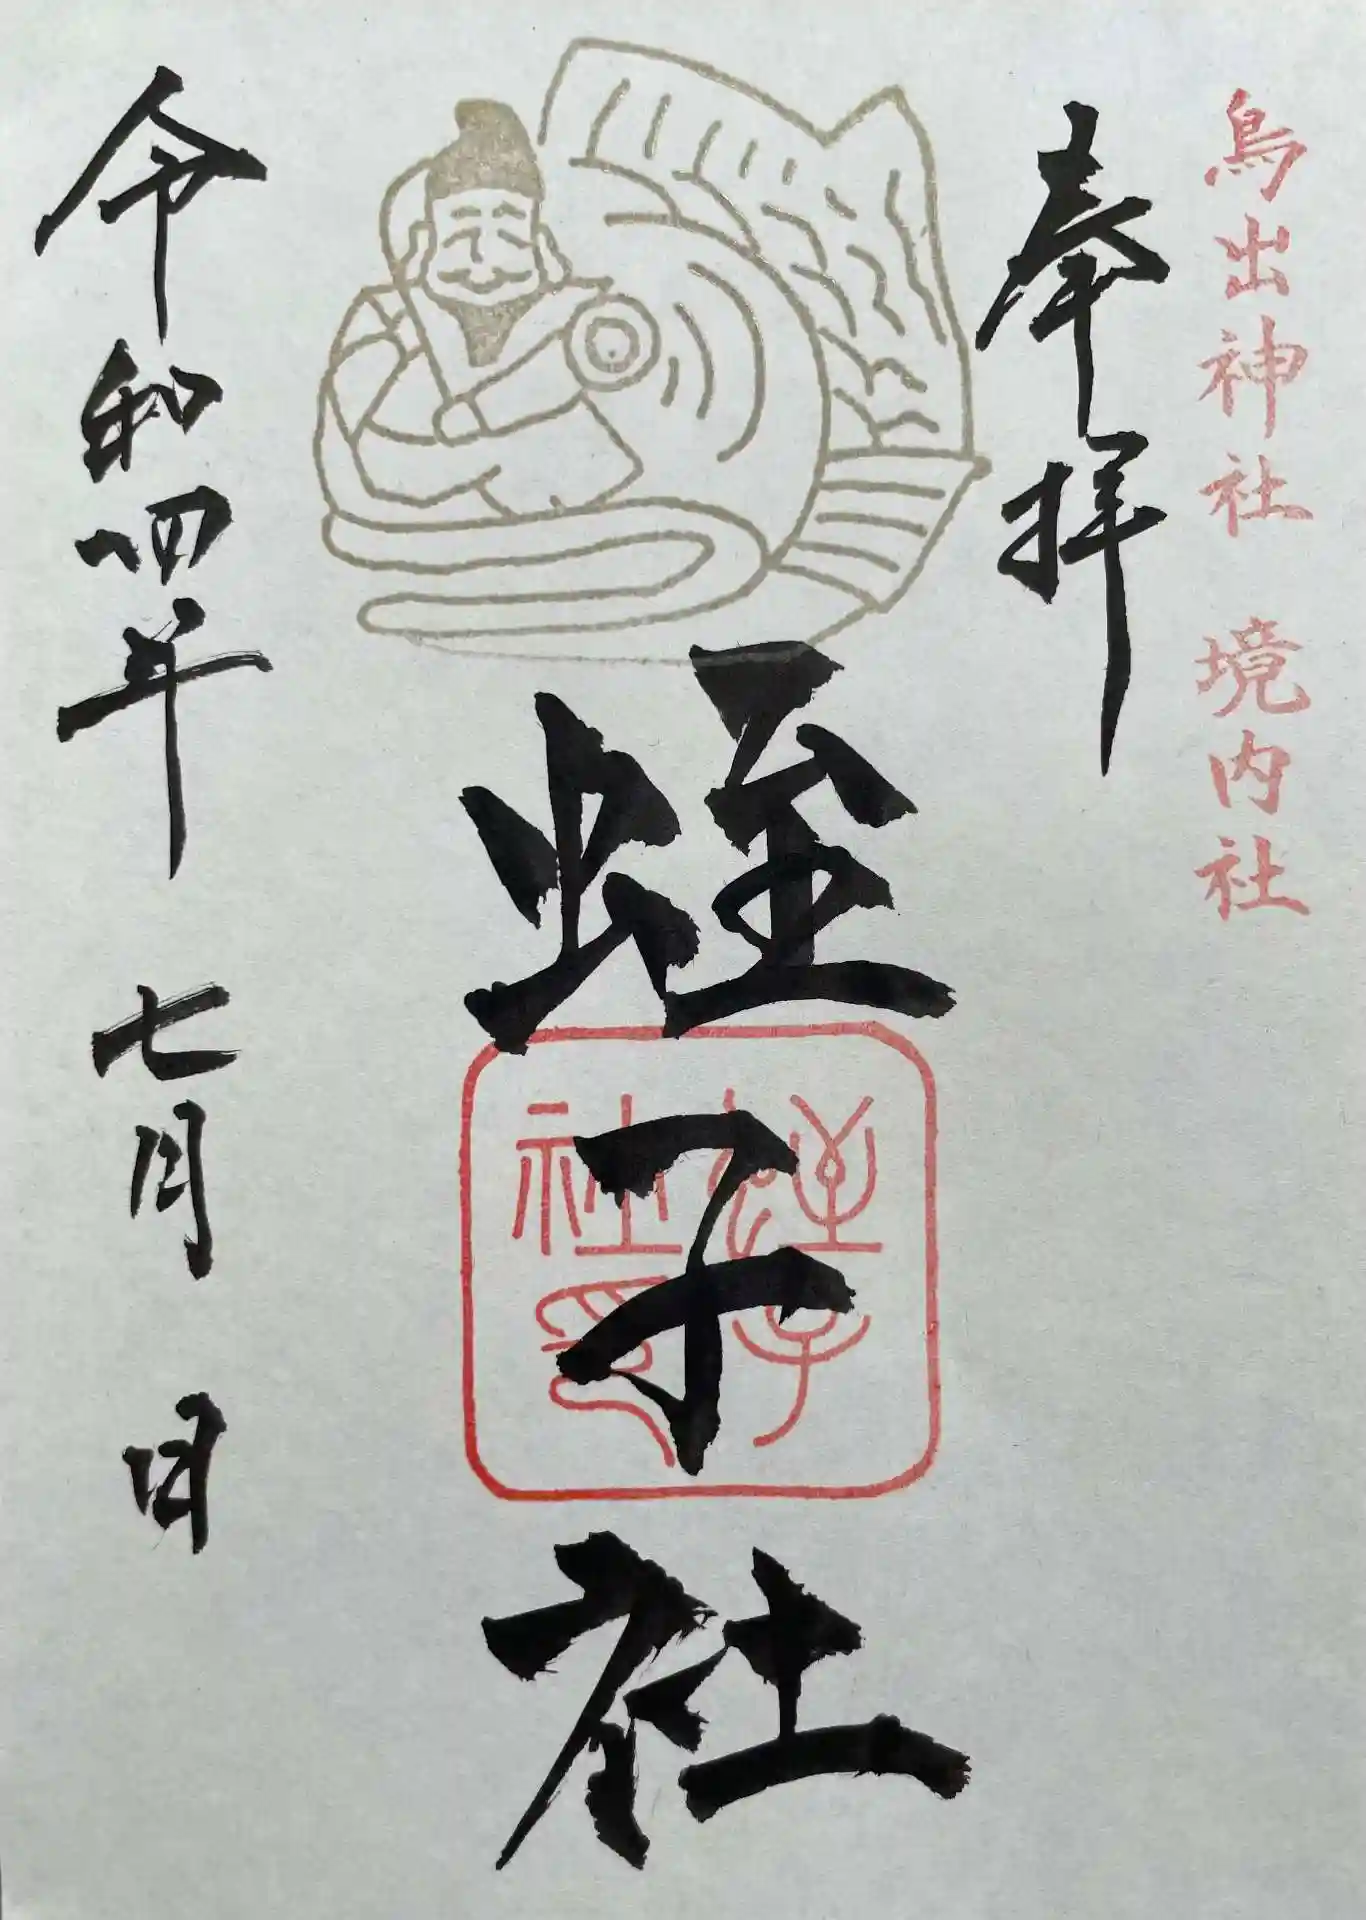 鳥出神社 境内社
奉拝
蛭子社
蛭子
社印
令和四年 七月 日